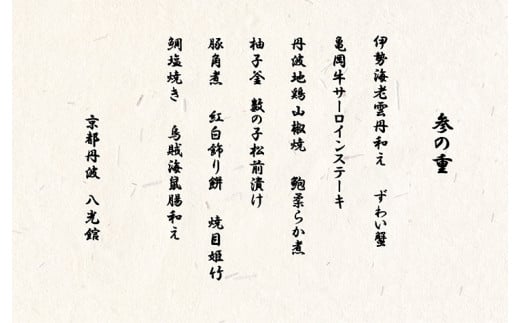 参の重
伊勢海老雲丹和え　ずわい蟹
亀岡牛サーロインステーキ
丹波地鶏山椒焼　鮑柔らか煮
柚子釜　数の子松前漬け
豚角煮　紅白飾り餅　焼目姫竹
鯛塩焼き　烏賊海鼠腸和え
京都丹波　八光館